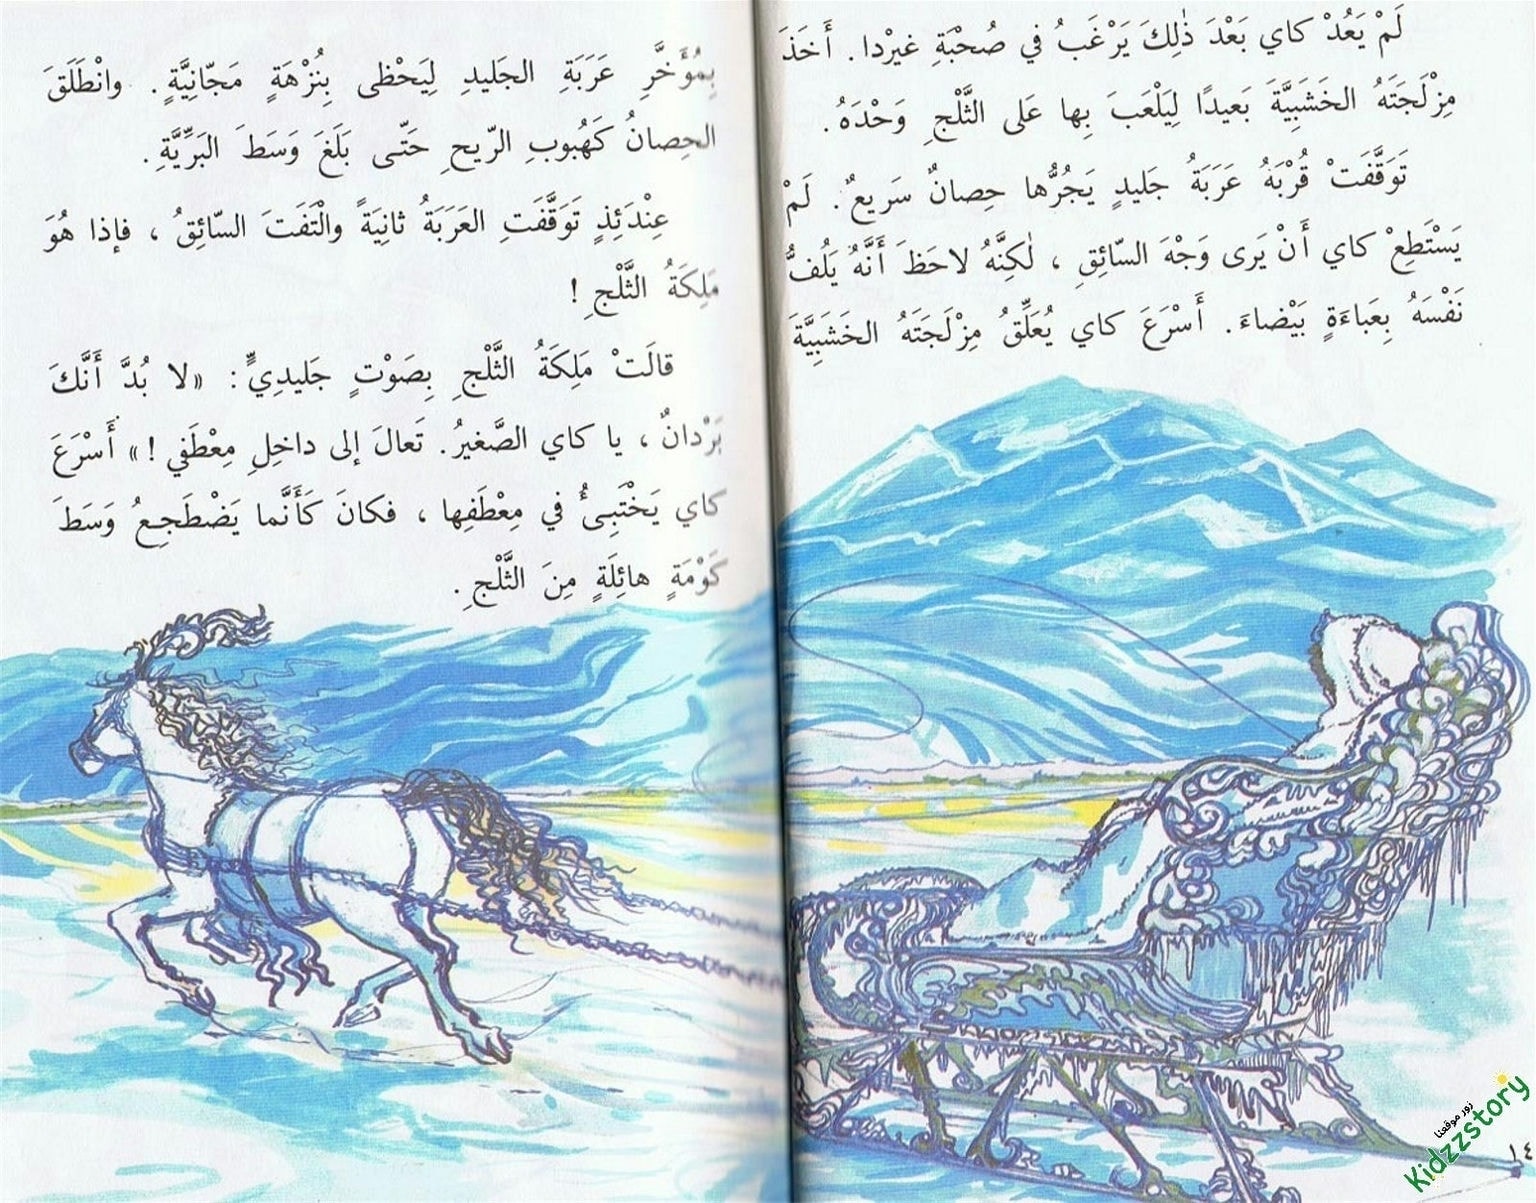 لَمْ يَعُدْ كاي بَعْدَ ذٰلِكَ يَرْغَبُ في صُحْبَةِ غيرْدا. أَخَذَ
مِزْلَجَتَهُ الخَشَبِيَّةَ بَعيدًا لِيَلْعَبَ بِها عَلى الثَّلْجِ وَحْدَهُ.
تَوَقَّفَتْ قُرْبَهُ عَرَبَةُ جَليدٍ يَجُرُّها حِصانٌ سَريعٌ. لَمْ
يَسْتَطِعْ كاي أَنْ يَرى وَجْهَ السّائِقِ، لٰكِنَّهُ لاحَظَ أَنَّهُ يَلُفُّ
نَفْسَهُ بِعَباءَةٍ بَيْضاءَ. أَسْرَعَ كاي يُعَلِّقُ مِزْلَجَتَهُ الخَشَبِيَّةَ
١٤
بِمُؤَخَّرِ عَرَبَةِ الجَليدِ لِيَحْظى بِنُزْهَةٍ مَجّانِيَّةٍ. وانْطَلَقَ
الحِصانُ كَهُبوبِ الرّيحِ حَتّى بَلَغَ وَسَطَ البَرِّيَّةِ.
عِنْدَئِذٍ تَوَقَّفَتِ العَرَبَةُ ثانِيَةً والْتَفَتَ السّائِقُ، فإذا هُوَ
مَلِكَةُ الثَّلْجِ!
قالَتْ مَلِكَةُ الثَّلْجِ بِصَوْتٍ جَليدِيٍّ: «لا بُدَّ أَنَّكَ
بَرْدانٌ، يا كاي الصَّغيرُ. تَعالَ إلى داخِلِ مِعْطَفي!» أَسْرَعَ
كاي يَخْتَبِئُ في مِعْطَفِها، فكانَ كَأَنَّما يَضْطَجِعُ وَسَطَ
كَوْمَةٍ هائِلَةٍ مِنَ الثَّلْجِ.
زور موقعنا
Kidzzstory